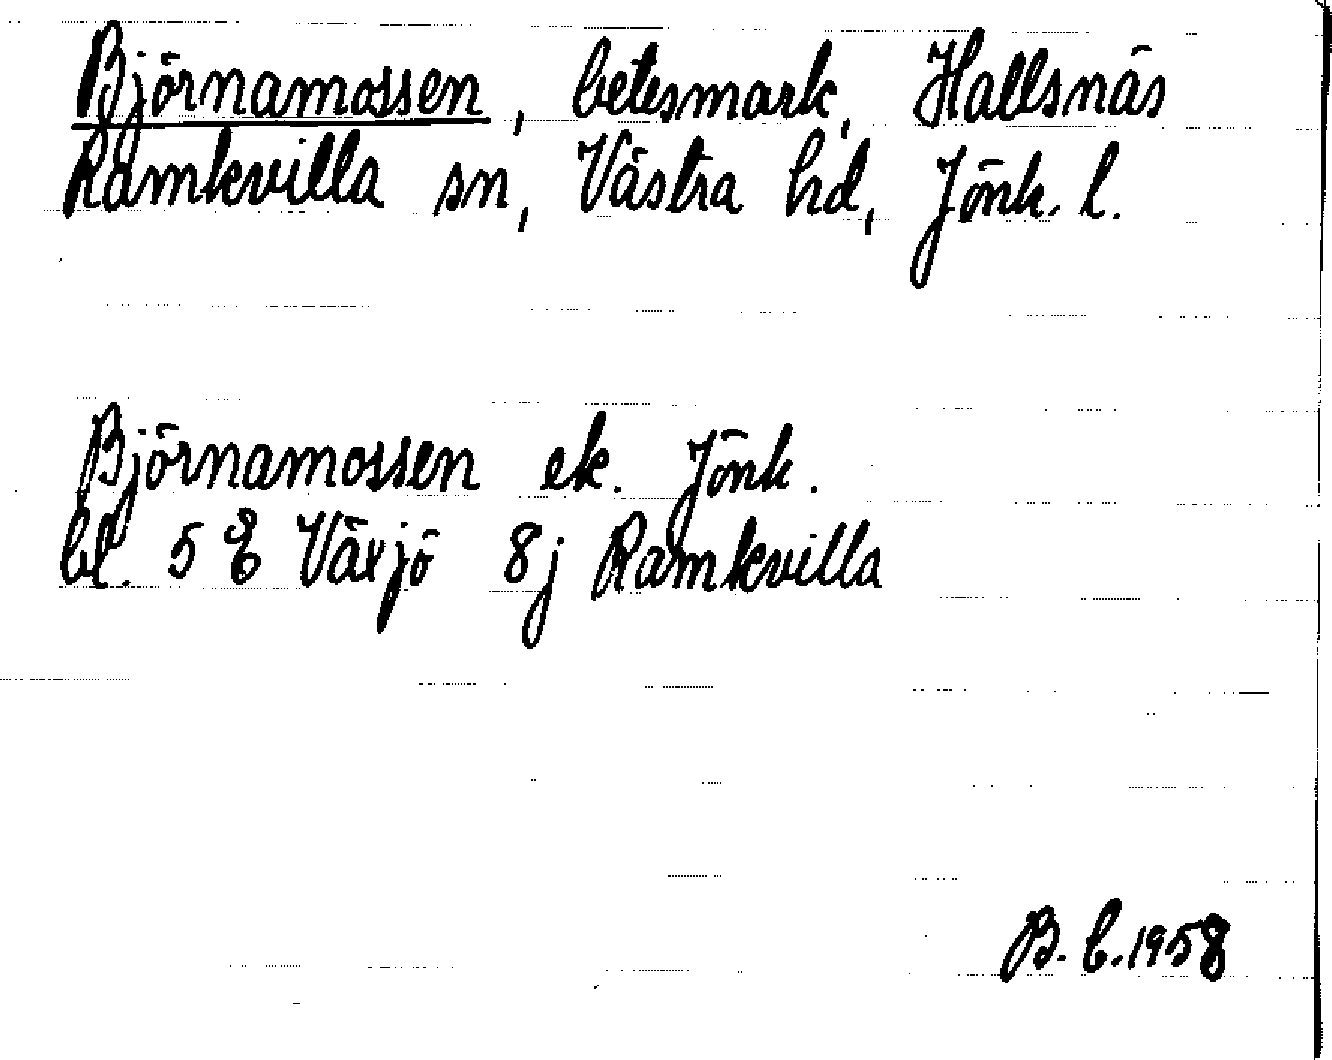 Björnamossen, betesmark, Hallsnäs
Ramkvilla sn, Västra hd, Jönk. l.
Björnamossen ek. Jönk.
bl. 5 E Växjö 8j Ramkvilla
B. C. 1958